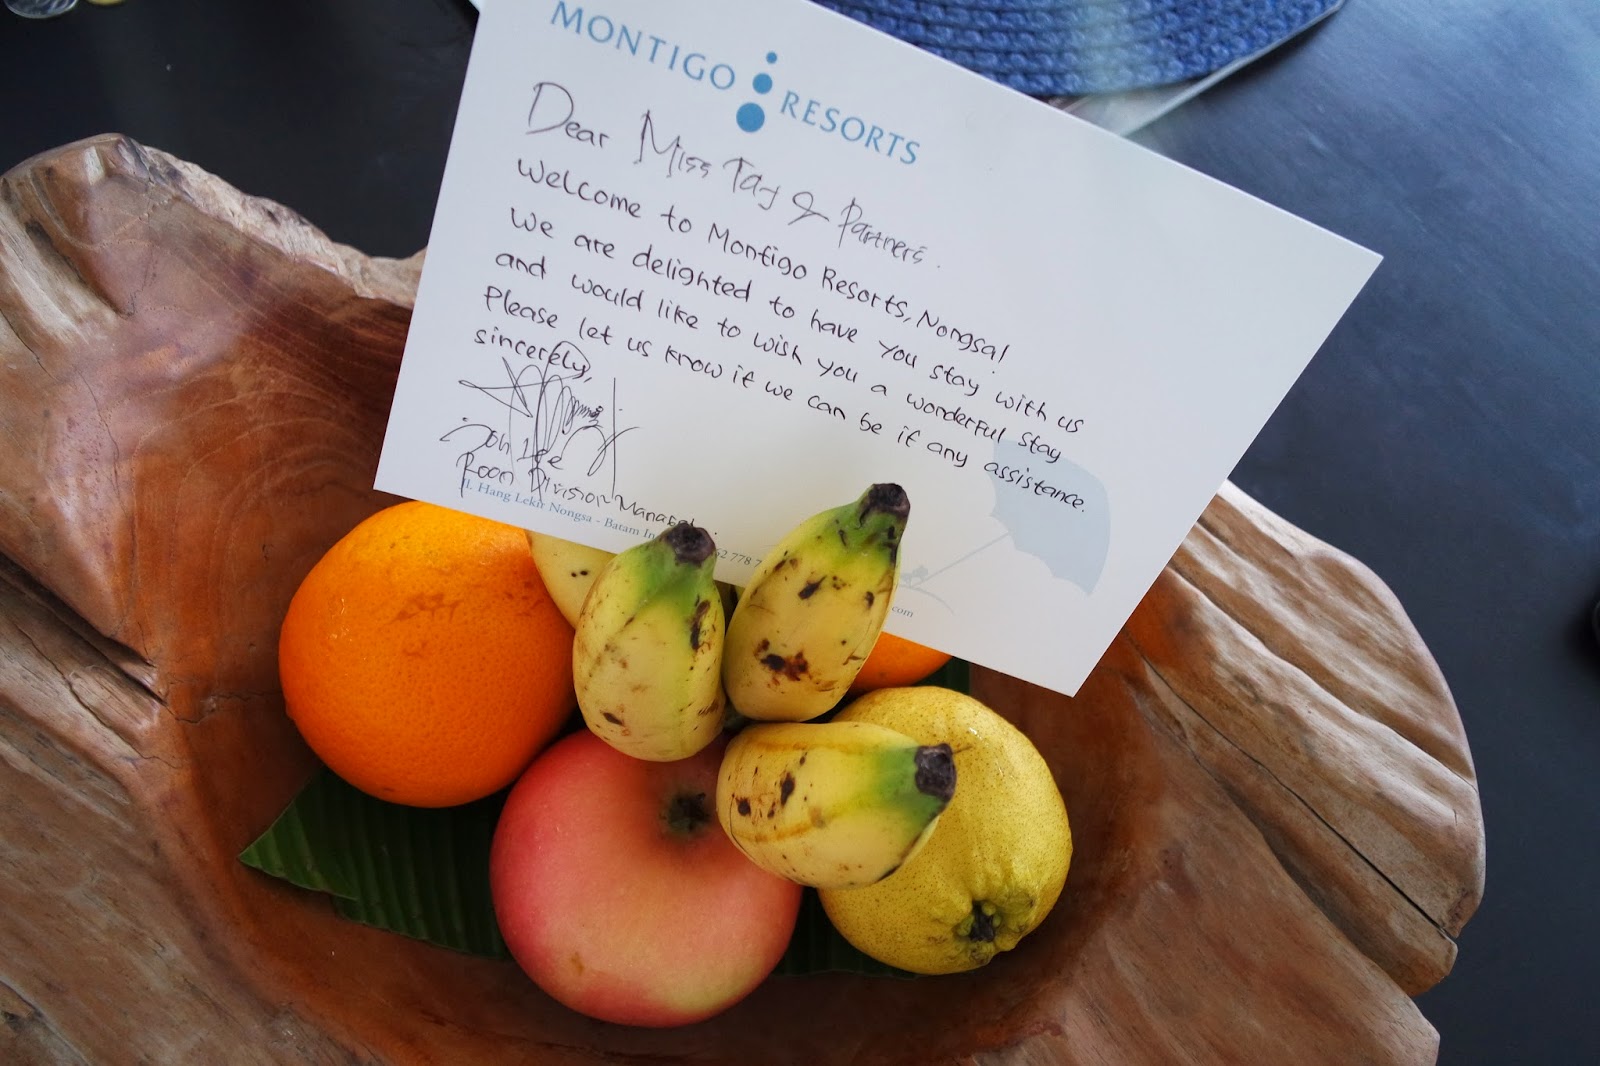 MONTIGO RESORTS
Dear Miss Tay & Partners.
Welcome to Montigo Resorts, Nongsa!
We are delighted to have you stay with us
and would like to wish you a wonderful stay
Please let us know if we can be if any assistance.
sincerely,
Lee
Room Division Manager
JL Hang Lekir Nongsa - Batam In
62 778 7
com